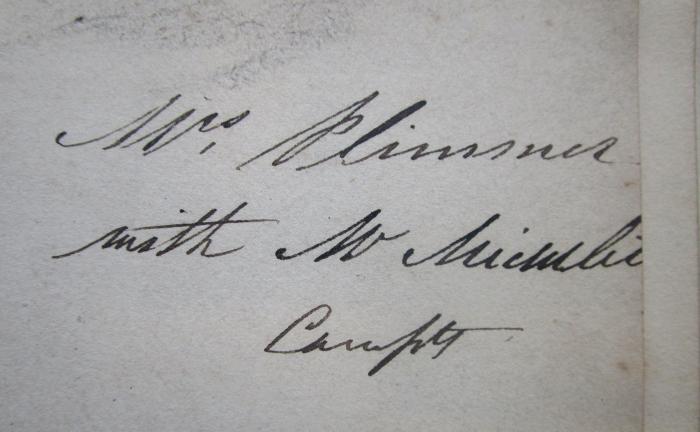 Mrs. Plimmer
with Mr
Compts